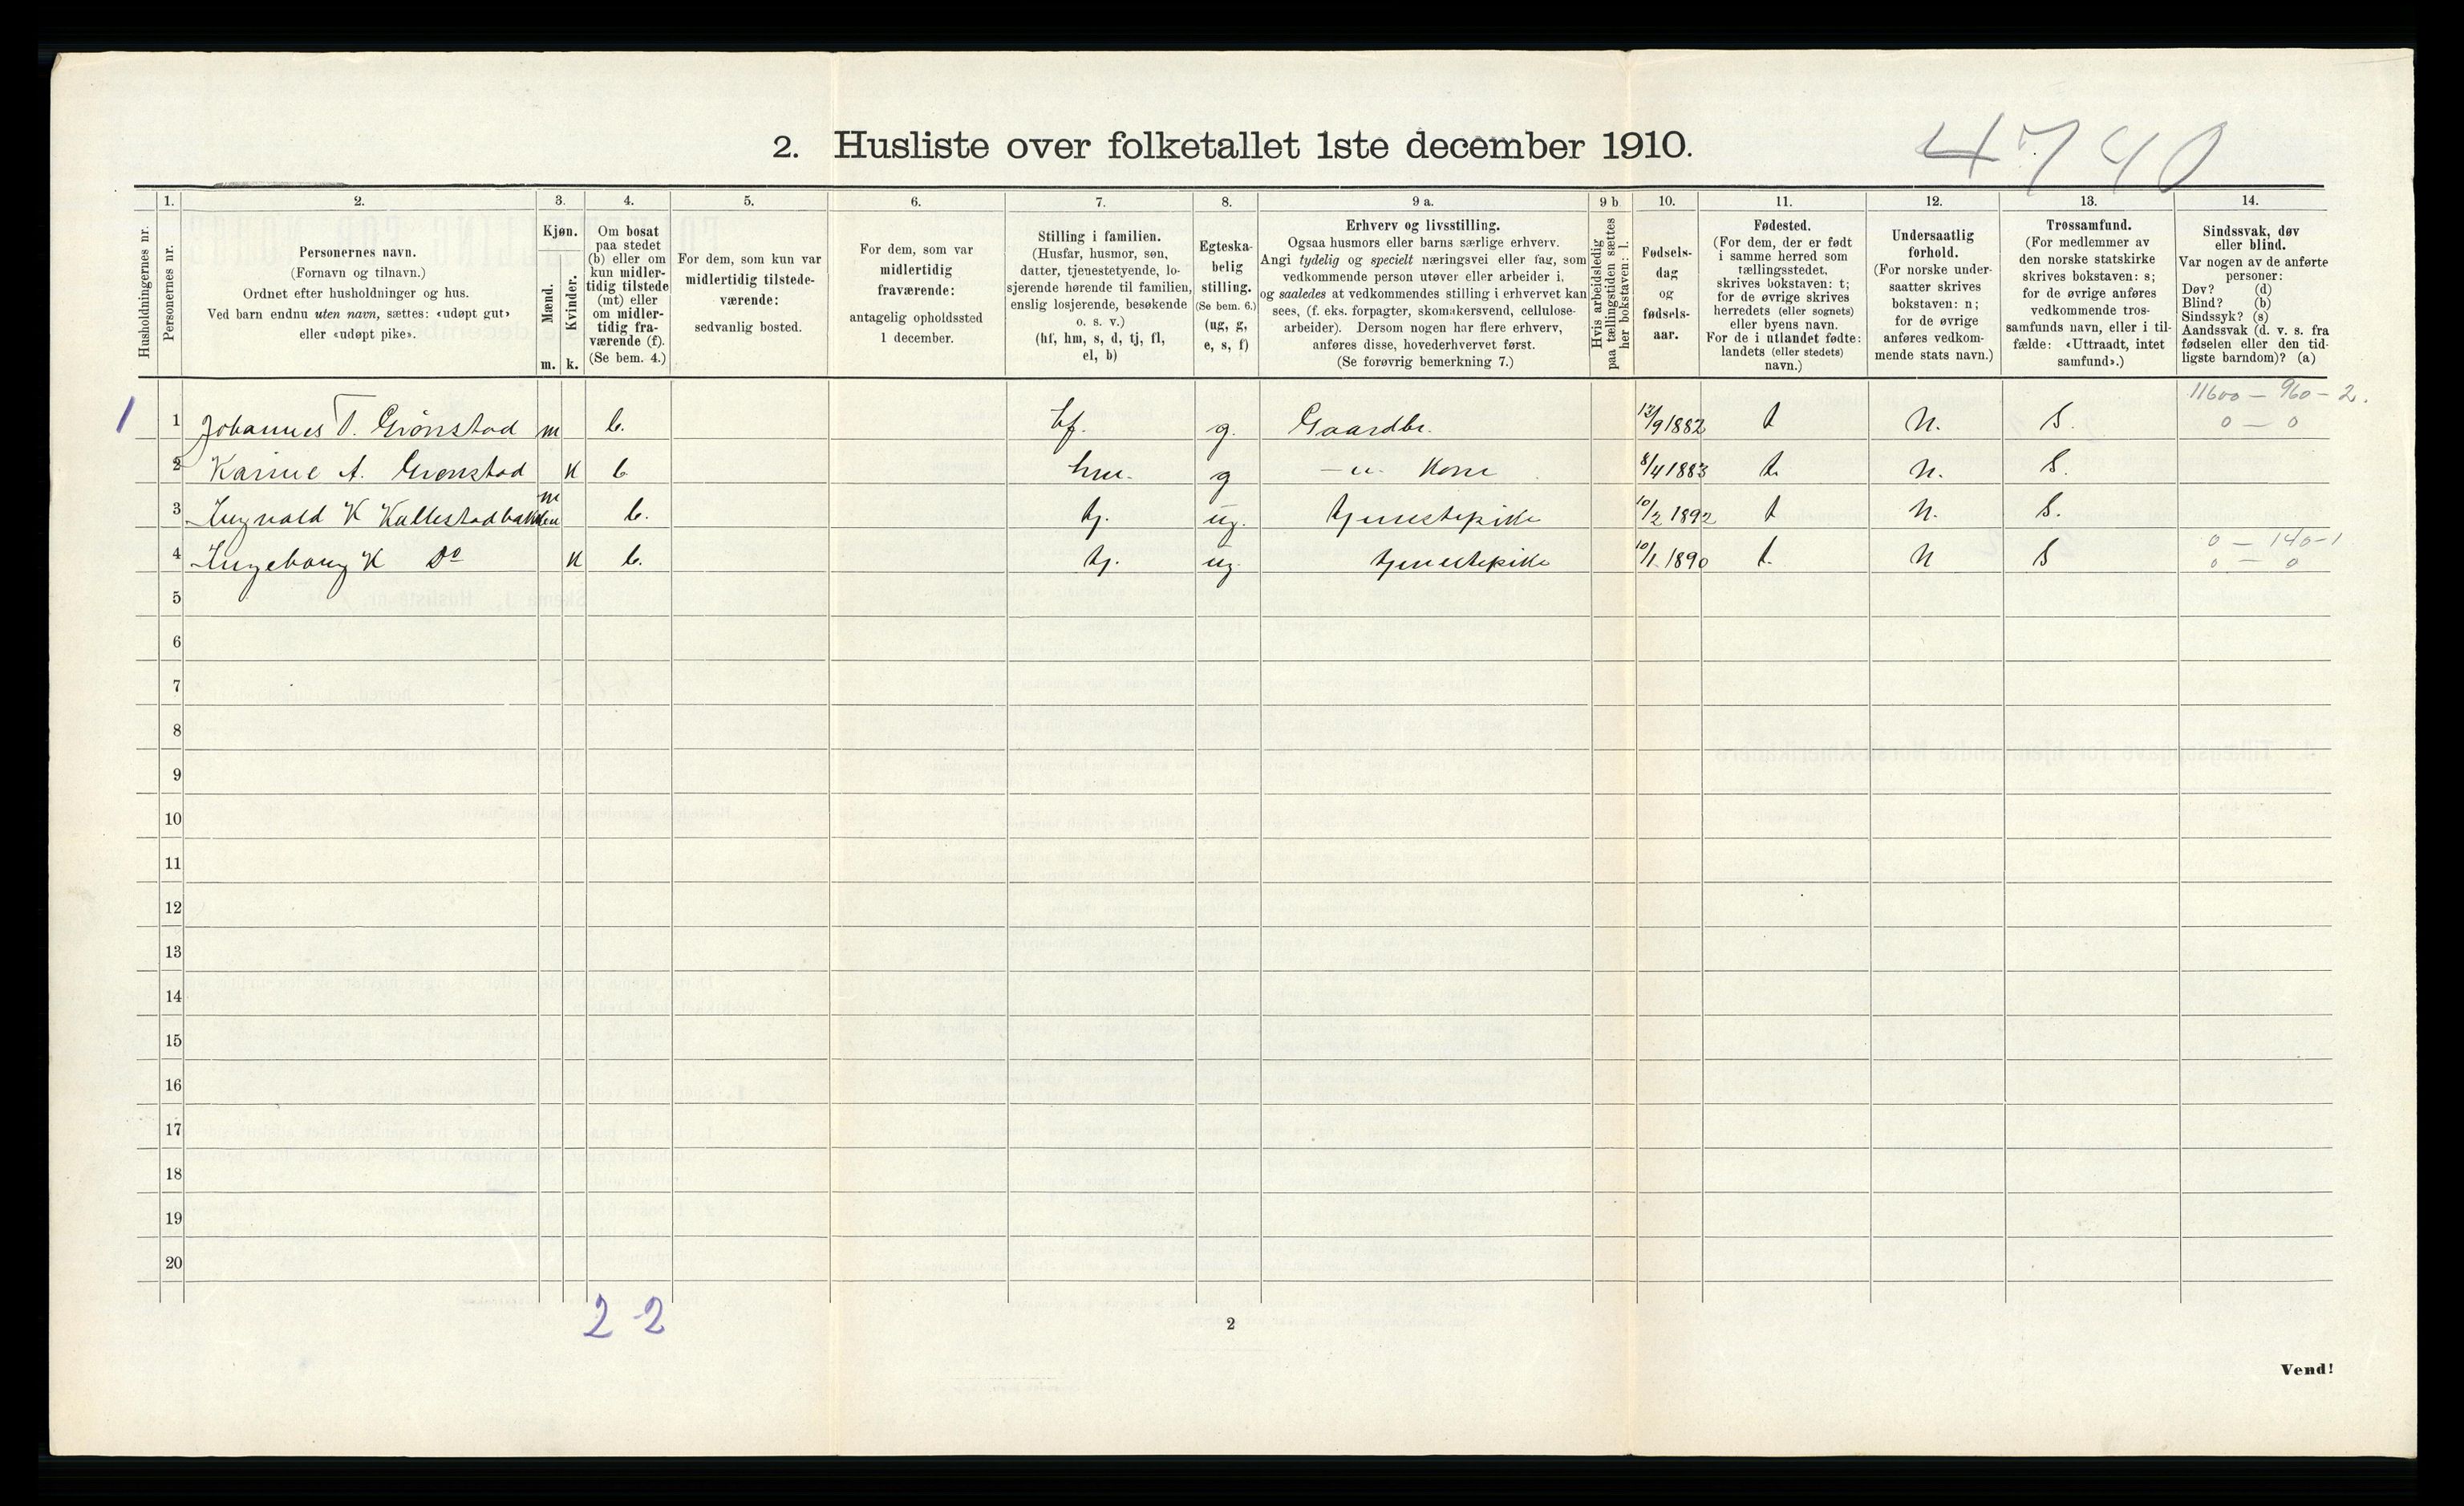 4740
2. Husliste over folketallet 1ste december 1910.
Husholdningernes nr.
1.
Personernes nr.
2.
Personernes navn.
(Fornavn og tilnavn.)
Ordnet efter husholdninger og hus.
Ved barn endnu uten navn, sættes: «udøpt gut»
eller «udøpt pike».
3.
Kjøn.
Mænd.
Kvinder.
m. k.
4.
Om bosat
paa stedet
(b) eller om
kun midler-
tidig tilstede
(mt) eller
om midler-
tidig fra-
værende (f).
(Se bem. 4.)
5.
For dem, som kun var
midlertidig tilstede-
værende:
sedvanlig bosted.
6.
For dem, som var
midlertidig
fraværende:
antagelig opholdssted
1 december.
7.
Stilling i familien.
(Husfar, husmor, søn,
datter, tjenestetyende, lo-
sjerende hørende til familien,
enslig losjerende, besøkende
o. s. v.)
(hf, hm, s, d, tj, fl,
el, b)
8.
Egteska-
belig
stilling.
(Se bem. 6.)
(ug, g,
e, s, f)
9 a.
Erhverv og livsstilling.
Ogsaa husmors eller barns særlige erhverv.
Angi tydelig og specielt næringsvei eller fag, som
vedkommende person utøver eller arbeider i,
og saaledes at vedkommendes stilling i erhvervet kan
sees, (f. eks. forpagter, skomakersvend, cellulose-
arbeider). Dersom nogen har flere erhverv,
anføres disse, hovederhvervet først.
(Se forøvrig bemerkning 7.)
9 b
Hvis arbeidsledig
paa tællingstiden sættes
her bokstaven: l.
10.
Fødsels-
dag
og
fødsels-
aar.
11.
Fødested.
(For dem, der er født
i samme herred som
tællingsstedet,
skrives bokstaven: t;
for de øvrige skrives
herredets (eller sognets)
eller byens navn.
For de i utlandet fødte:
landets (eller stedets)
navn.)
12.
Undersaatlig
forhold.
(For norske under-
saatter skrives
bokstaven: n;
for de øvrige
anføres vedkom-
mende stats navn.)
13.
Trossamfund.
(For medlemmer av
den norske statskirke
skrives bokstaven: s;
for de øvrige anføres
vedkommende tros-
samfunds navn, eller i til-
fælde: «Uttraadt, intet
samfund».)
14.
Sindssvak, døv
eller blind.
Var nogen av de anførte
personer:
Døv? (d)
Blind? (b)
Sindssyk? (s)
Aandssvak (d. v. s. fra
fødselen eller den tid-
ligste barndom)? (a)
11600 — 960 - 2.
1 1 Johannes T. Grönstad m b. hf. g. Gaardbr. 12/9 1882 t n. S. 0 — 0
2 Karine A. Grønstad k b hm. g — " — Kone 8/4 1883 t. n. S.
3 Ingvald K Kallestadbakken m b. tj. ug. tjenestepike 10/2 1892 t n. S.
0 — 140 - 1
4 Ingeborg K Do k b. tj. ug. tjenestepike 10/1 1890 t. n S 0 — 0
5
6
7
8
9
10
11
12
13
14
15
16
17
18
19
20
2 2
2
Vend!